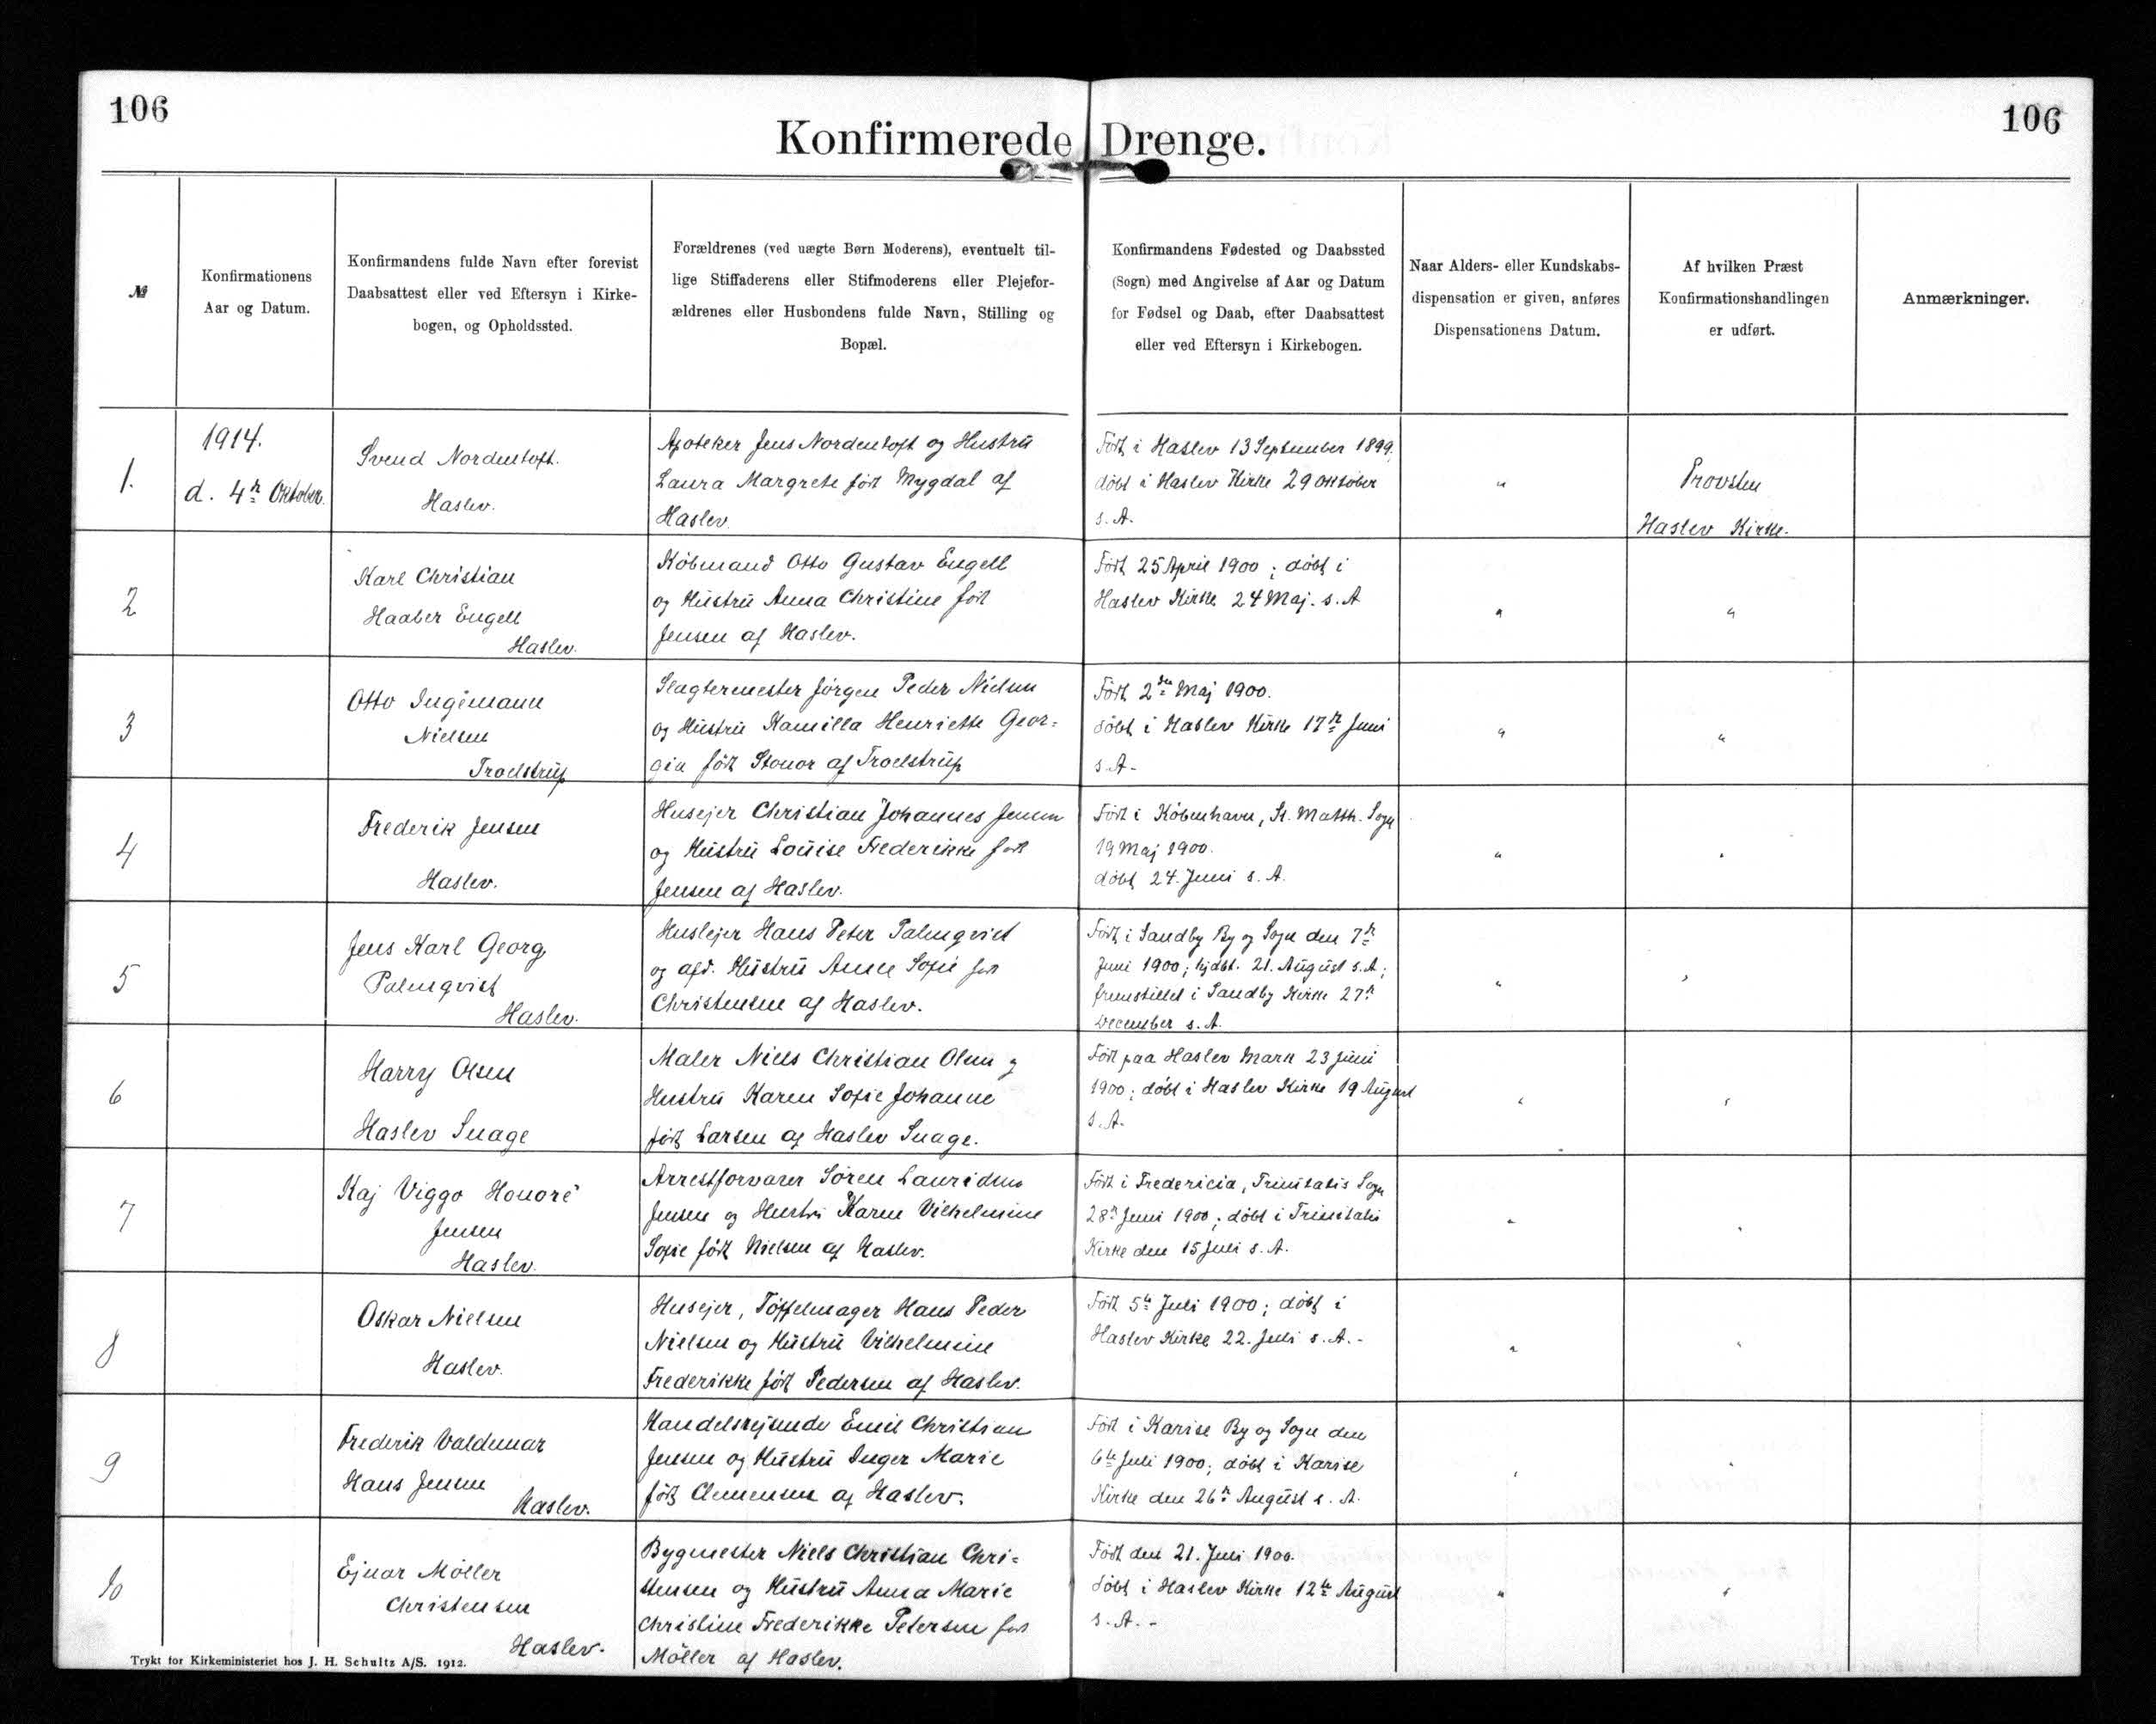 106
106
Konfirmerede Drenge.
№
Konfirmationens
Aar og Datum.
Konfirmandens fulde Navn efter forevist
Daabsattest eller ved Eftersyn i Kirke-
bogen, og Opholdssted.
Forældrenes (ved uægte Børn Moderens), eventuelt til-
lige Stiffaderens eller Stifmoderens eller Plejefor-
ældrenes eller Husbondens fulde Navn, Stilling og
Bopæl.
Konfirmandens Fødested og Daabssted
(Sogn) med Angivelse af Aar og Datum
for Fødsel og Daab, efter Daabsattest
eller ved Eftersyn i Kirkebogen.
Naar Alders- eller Kundskabs-
dispensation er given, anføres
Dispensationens Datum.
Af hvilken Præst
Konfirmationshandlingen
er udført.
Anmærkninger.
1.
1914.
d. 4de Oktober.
Svend Nordentoft.
Haslev.
Apoteker Jens Nordentoft og Hustru
Laura Margrete født Mygdal af
Haslev.
Født i Haslev 13 September 1899,
døbt i Haslev Kirke 29 Oktober
s. A.
"
Provsten
Haslev Kirke.
2
Karl Christian
Haaber Engell
Haslev.
Købmand Otto Gustav Engell
og Hustru Anna Christine født
Jensen af Haslev.
Født 25 April 1900; døbt i
Haslev Kirke 24 Maj. s. A
"
"
3
Otto Ingemann
Nielsen
Troelstrup
Slagtermester Jørgen Peder Nielsen
og Hustru Kamilla Henriette Geor=
gia født Stonor af Troelstrup
Født 2den Maj 1900.
døbt i Haslev Kirke 17de Juni
s. A-
"
"
4
Frederik Jensen
Haslev.
Husejer Christian Johannes Jensen
og Hustru Louise Frederikke født
Jensen af Haslev.
Født i København, St. Matth. Sogn
19 Maj 1900.
døbt 24. Juni s. A.
"
"
5
Jens Karl Georg
Palmqvist
Haslev.
Huslejer Hans Peter Palmqvist
og afd. Hustru Anne Sofie født
Christensen af Haslev.
Født i Sandby By og Sogn den 7de
Juni 1900; hjdbt. 21. August s. A;
fremstillet i Sandby Kirke 27de
December s. A.
"
"
6
Harry Olsen
Haslev Snage
Maler Niels Christian Olsen og
Hustru Karen Sofie Johanne
født Larsen af Haslev Snage.
Født paa Haslev Mark 23 Juni
1900; døbt i Haslev Kirke 19 August
s. A.
"
"
7
Kaj Viggo Honoré
Jensen
Haslev.
Arrestforvarer Søren Lauridsen
Jensen og Hustru Karen Vilhelmine
Sofie født Nielsen af Haslev.
Født i Fredericia, Trinitatis Sogn
28de Juni 1900; døbt i Trinitatis
Kirke den 15 Juli s. A.
"
"
8
Oskar Nielsen
Haslev.
Husejer, Tøffelmager Hans Peder
Nielsen og Hustru Vilhelmine
Frederikke født Pedersen af Haslev.
Født 5te Juli 1900; døbt i
Haslev Kirke 22. Juli s. A. -
"
"
9
Frederik Valdemar
Hans Jensen
Haslev.
Handelsrejsende Emil Christian
Jensen og Hustru Inger Marie
født Clemensen af Haslev.
Født i Karise By og Sogn den
6te Juli 1900; døbt i Karise
Kirke den 26de August s. A.
"
"
10
Ejnar Möller
Christensen
Haslev.
Bygmester Niels Christian Chri=
stensen og Hustru Anna Marie
Christine Frederikke Petersen født
Möller af Haslev.
Født den 21. Juli 1900.
døbt i Haslev Kirke 12te August
s. A. -
"
"
Trykt for Kirkeministeriet hos J. H. Schultz A/S. 1912.